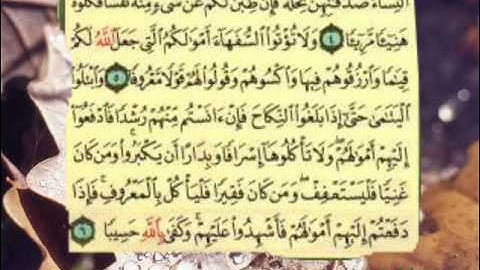 النِّسَاءَ صَدُقَاتِهِنَّ نِحْلَةً فَإِن طِبْنَ لَكُمْ عَن شَيْءٍ مِّنْهُ نَفْسًا فَكُلُوهُ
هَنِيئًا مَّرِيئًا ٤ وَلَا تُؤْتُوا۟ السُّفَهَاءَ أَمْوَالَكُمُ الَّتِي جَعَلَ اللَّهُ لَكُمْ
قِيَامًا وَارْزُقُوهُمْ فِيهَا وَاكْسُوهُمْ وَقُولُوا۟ لَهُمْ قَوْلًا مَّعْرُوفًا ٥ وَابْتَلُوا۟
الْيَتَامَىٰ حَتَّىٰ إِذَا بَلَغُوا۟ النِّكَاحَ فَإِنْ آنَسْتُم مِّنْهُمْ رُشْدًا فَادْفَعُوا۟
إِلَيْهِمْ أَمْوَالَهُمْ وَلَا تَأْكُلُوهَا إِسْرَافًا وَبِدَارًا أَن يَكْبَرُوا۟ وَمَن كَانَ
غَنِيًّا فَلْيَسْتَعْفِفْ وَمَن كَانَ فَقِيرًا فَلْيَأْكُلْ بِالْمَعْرُوفِ فَإِذَا
دَفَعْتُمْ إِلَيْهِمْ أَمْوَالَهُمْ فَأَشْهِدُوا۟ عَلَيْهِمْ وَكَفَىٰ بِاللَّهِ حَسِيبًا ٦